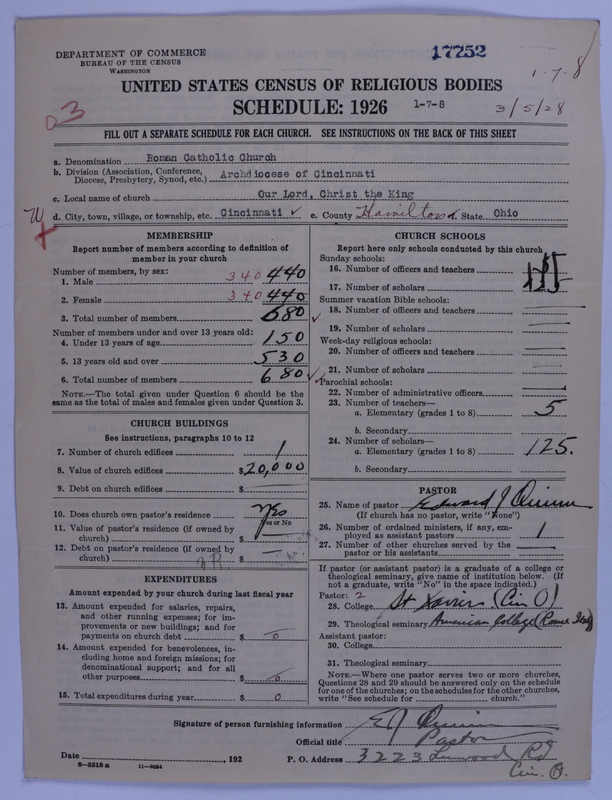 DEPARTMENT OF COMMERCE
BUREAU OF THE CENSUS
WASHINGTON
17252
1-7-8
UNITED STATES CENSUS OF RELIGIOUS BODIES
SCHEDULE: 1926 1-7-8
3/5/28
03
FILL OUT A SEPARATE SCHEDULE FOR EACH CHURCH. SEE INSTRUCTIONS ON THE BACK OF THIS SHEET
a. Denomination Roman Catholic Church
b. Division (Association, Conference, Diocese, Presbytery, Synod, etc.) Archdiocese of Cincinnati
c. Local name of church Our Lord, Christ the King
d. City, town, village, or township, etc. Cincinnati ✓ e. County Hamilton f. State Ohio
MEMBERSHIP
Report number of members according to definition of
member in your church
Number of members, by sex:
1. Male 340 440
2. Female 340 440
3. Total number of members 680 ✓
Number of members under and over 13 years old:
4. Under 13 years of age 150
5. 13 years old and over 530
6. Total number of members 680 ✓
NOTE.—The total given under Question 6 should be
same as the total of males and females given under Question 3.
CHURCH BUILDINGS
See instructions, paragraphs 10 to 12
7. Number of church edifices 1
8. Value of church edifices $20,000
9. Debt on church edifices $
10. Does church own pastor's residence Yes
Yes or No
11. Value of pastor's residence (if owned by
church) $ —
12. Debt on pastor's residence (if owned by
church) $ —
EXPENDITURES
Amount expended by your church during last fiscal year
13. Amount expended for salaries, repairs,
and other running expenses; for im-
provements or new buildings; and for
payments on church debt $ 0
14. Amount expended for benevolences, in-
cluding home and foreign missions; for
denominational support; and for all
other purposes $ 0
15. Total expenditures during year $ 0
CHURCH SCHOOLS
Report here only schools conducted by this church
Sunday schools:
16. Number of officers and teachers
17. Number of scholars
Summer vacation Bible schools:
18. Number of officers and teachers —
19. Number of scholars —
Week-day religious schools:
20. Number of officers and teachers —
21. Number of scholars —
Parochial schools:
22. Number of administrative officers —
23. Number of teachers—
a. Elementary (grades 1 to 8) 5
b. Secondary
24. Number of scholars—
a. Elementary (grades 1 to 8) 125.
b. Secondary
PASTOR
25. Name of pastor Edward J Quinn
(If church has no pastor, write "None")
26. Number of ordained ministers, if any, em-
ployed as assistant pastors 1
27. Number of other churches served by the
pastor or his assistants —
If pastor (or assistant pastor) is a graduate of a college or
theological seminary, give name of institution below. (If
not a graduate, write "No" in the space indicated.)
Pastor: 2
28. College St Xavier (Cin O)
29. Theological seminary American College (Rome Italy)
Assistant pastor:
30. College
31. Theological seminary
NOTE.—Where one pastor serves two or more churches,
Questions 28 and 29 should be answered only on the schedule
for one of the churches; on the schedules for the other churches,
write "See schedule for church."
Signature of person furnishing information E J Quinn
Official title Pastor
Date , 192 P. O. Address 3223 Linwood Rd
Cin. O.
8—5518 a 11—9064